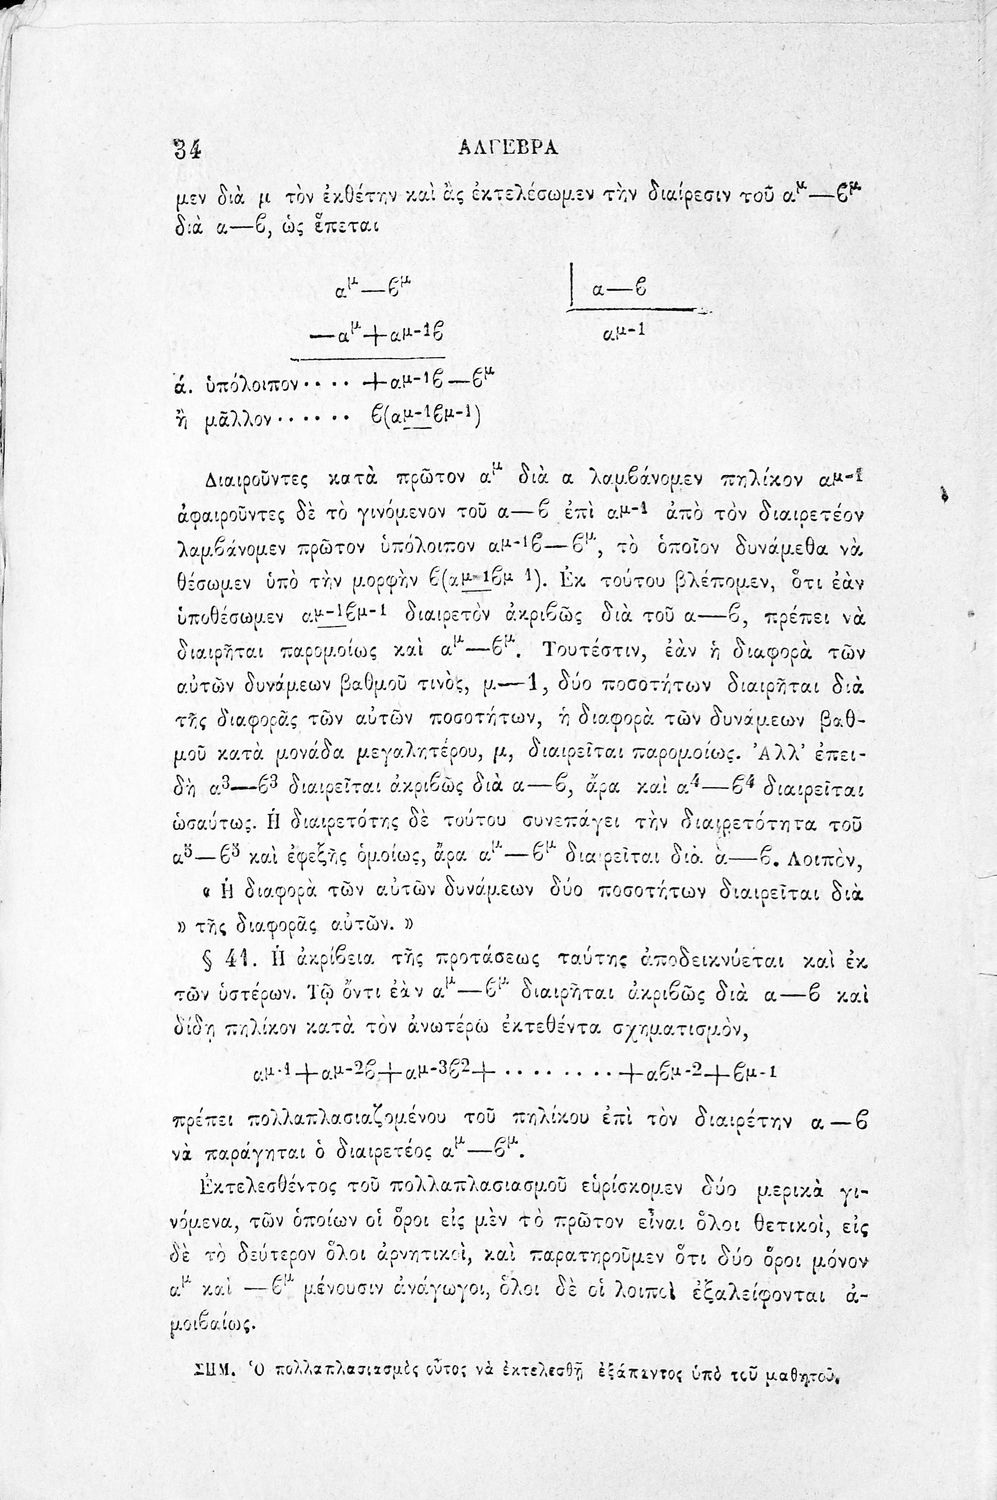 34 ΑΛΓΕΒΡΑ
μεν διὰ μ τὸν ἐκθέτην καὶ ἂς ἐκτελέσωμεν τὴν διαίρεσιν τοῦ α^μ—ϐ^μ
διὰ α—ϐ, ὡς ἕπεται
α^μ—ϐ^μ | α—ϐ
—α^μ+α^μ-1ϐ α^μ-1
ά. ὑπόλοιπον···· +α^μ-1ϐ—ϐ^μ
ἢ μᾶλλον······ ϐ(α^μ-1—ϐ^μ-1)
Διαιροῦντες κατὰ πρῶτον α^μ διὰ α λαμϐάνομεν πηλίκον α^μ-1
ἀφαιροῦντες δὲ τὸ γινόμενον τοῦ α—ϐ ἐπὶ α^μ-1 ἀπὸ τὸν διαιρετέον
λαμϐάνομεν πρῶτον ὑπόλοιπον α^μ-1ϐ—ϐ^μ, τὸ ὁποῖον δυνάμεθα νὰ
θέσωμεν ὑπὸ τὴν μορφὴν ϐ(α^μ-1—ϐ^μ 1). Ἐκ τούτου βλέπομεν, ὅτι ἐὰν
ὑποθέσωμεν α^μ-1—ϐ^μ-1 διαιρετὸν ἀκριϐῶς διὰ τοῦ α—ϐ, πρέπει νὰ
διαιρῆται παρομοίως καὶ α^μ—ϐ^μ. Τουτέστιν, ἐὰν ἡ διαφορὰ τῶν
αὐτῶν δυνάμεων βαθμοῦ τινὸς, μ—1, δύο ποσοτήτων διαιρῆται διὰ
τῆς διαφορᾶς τῶν αὐτῶν ποσοτήτων, ἡ διαφορὰ τῶν δυνάμεων βαθ-
μοῦ κατὰ μονάδα μεγαλητέρου, μ, διαιρεῖται παρομοίως. Ἀλλ' ἐπει-
δὴ α^3—ϐ^3 διαιρεῖται ἀκριϐῶς διὰ α—ϐ, ἄρα καὶ α^4—ϐ^4 διαιρεῖται
ὡσαύτως. Ἡ διαιρετότης δὲ τούτου συνεπάγει τὴν διαιρετότητα τοῦ
α^5—ϐ^5 καὶ ἐφεξῆς ὁμοίως, ἄρα α^μ—ϐ^μ διαιρεῖται διὰ ἀ—ϐ. Λοιπὸν,
« Ἡ διαφορὰ τῶν αὐτῶν δυνάμεων δύο ποσοτήτων διαιρεῖται διὰ
» τῆς διαφορᾶς αὐτῶν. »
§ 41. Ἡ ἀκρίϐεια τῆς προτάσεως ταύτης ἀποδεικνύεται καὶ ἐκ
τῶν ὑστέρων. Τῷ ὄντι ἐὰν α^μ—ϐ^μ διαιρῆται ἀκριϐῶς διὰ α—ϐ καὶ
δίδῃ πηλίκον κατὰ τὸν ἀνωτέρω ἐκτεθέντα σχηματισμὸν,
α^μ-1+α^μ-2ϐ+α^μ-3ϐ^2+········+αϐ^μ-2+ϐ^μ-1
πρέπει πολλαπλασιαζομένου τοῦ πηλίκου ἐπὶ τὸν διαιρέτην α—ϐ
νὰ παράγηται ὁ διαιρετέος α^μ—ϐ^μ.
Ἐκτελεσθέντος τοῦ πολλαπλασιασμοῦ εὑρίσκομεν δύο μερικὰ γι-
νόμενα, τῶν ὁποίων οἱ ὅροι εἰς μὲν τὸ πρῶτον εἶναι ὅλοι θετικοὶ, εἰς
δὲ τὸ δεύτερον ὅλοι ἀρνητικοὶ, καὶ παρατηροῦμεν ὅτι δύο ὅροι μόνον
α^μ καὶ —ϐ^μ μένουσιν ἀνάγωγοι, ὅλοι δὲ οἱ λοιποὶ ἐξαλείφονται ἀ-
μοιϐαίως.
ΣΗΜ. Ὁ πολλαπλασιασμὸς οὗτος νὰ ἐκτελεσθῇ ἐξάπαντος ὑπὸ τοῦ μαθητοῦ.